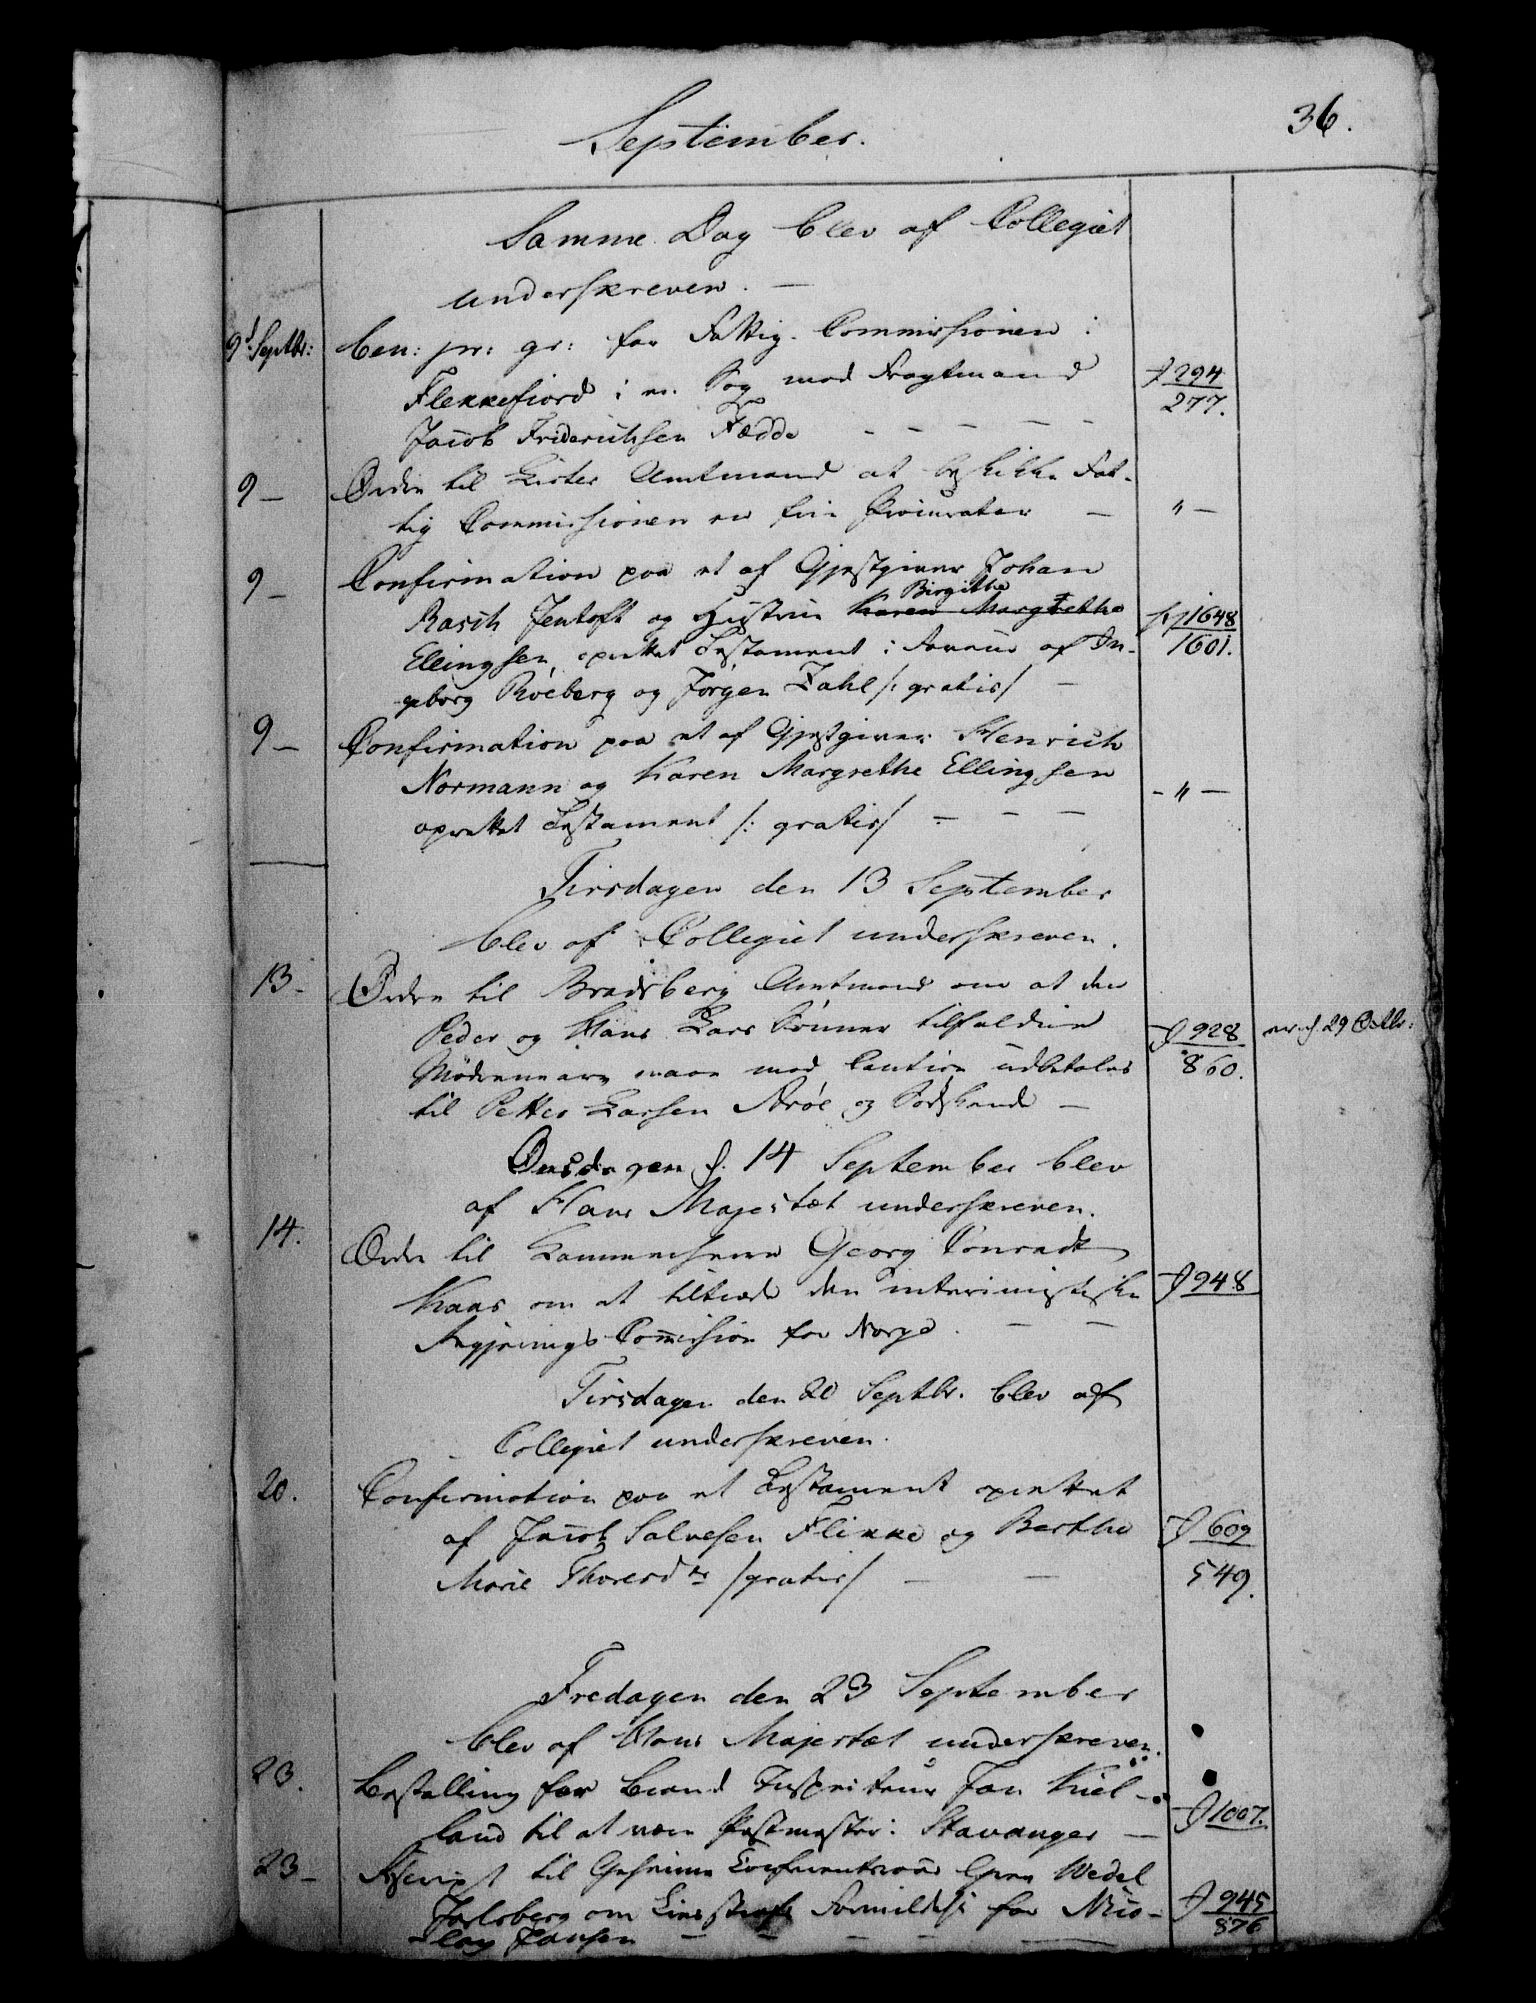 36.
September.
Samme Dag blev af Collegiet
underskreven. —
9d Septbr: ben: pr: gr: for Fattig-Commissionen i
Flekkefiord i en Sag mod Fragtmand J 294
Jacob Friderichsen Fædde - - - - - 277.
9 — Ordre til Lister Amtmand at beskikke Fat-
tig Commissionen en frie Procurator — " —
9 — Confirmation paa et af Gjestgiver Johan
Birgithe
Rasch Jentoft og Hustrue Karen Margrethe 1648
Ellingsen, oprettet Testament i Faveur af In- 1601.
geborg Röeberg og Jörgen Zahl /: gratis/ —
9 — Confirmation paa et af Gjestgiver Henrich
Normann og Karen Margrethe Ellingsen
oprettet Testament /: gratis/ - — — - " —
Tirsdagen den 13 September
blev af Collegiet underskreven.
13 - Ordre til Bradsberg Amtmand om at den
Peder og Hans Lars Sønner tilfaldne J 928 d 29 Octbr:
Mödrenearv maae mod Caution udbetales 860.
til Petter Larsen Aröe og —
Onsdagen d. 14 September blev
af Hans Majestæt underskreven.
14. Ordre til Kammerherre Georg Conradt
Kaas om at tiltræde den interimistiske J 948
Regjerings Com̄ission for Norge. — —
Tirsdagen den 20 Septbr. blev af
Collegiet underskreven.
20. Confirmation paa et Testament oprettet
af Jacob Salvesen Flikke og Berthe J 609
Marie Thoresdtr /gratis/ — — 549.
Fredagen den 23 September
blev af Hans Majestæt underskreven.
23. Bestalling for Brand Inspecteur Jan Kiel-
land til at være Postmester i Stavanger — J 1007.
23 - Rescript til Geheime Conferentsraad Grev Wedel
Jarlsberg om Livsstrafs Formildelse for Nico- J 945
lay Hansen — — — — 876